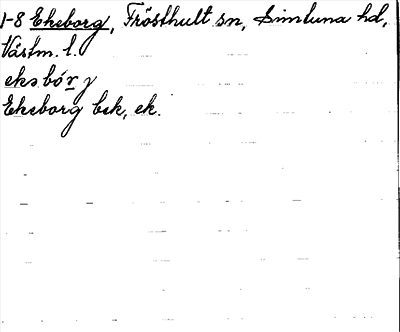 1-8 Ekeborg, Frösthult sn, Simtuna hd,
Västm. l.
eks bór y
Ekeborg bsk, ek.